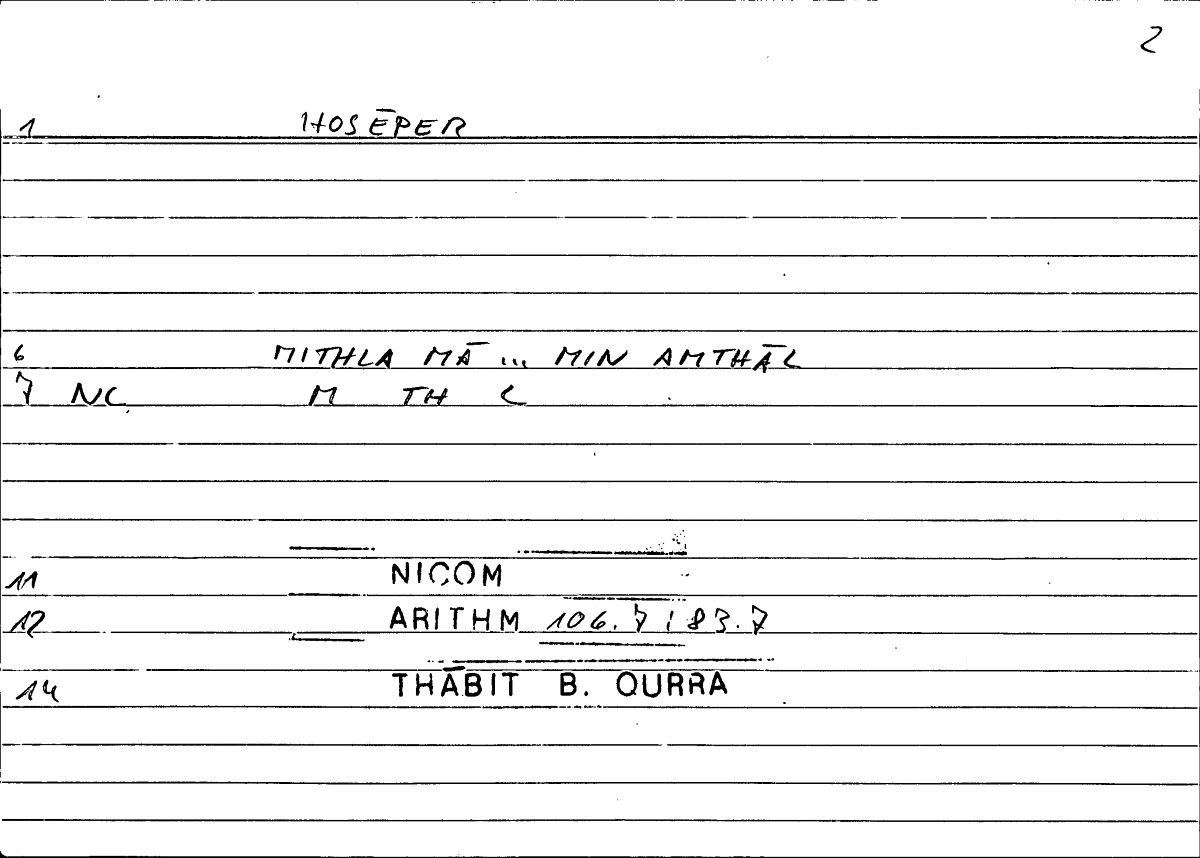 2
1 HOSĒPER
6 MITHLA MĀ ... MIN AMTHĀL
7 NC M TH L
11 NICOM
12 ARITHM 106.7 ; 83.7
14 THĀBIT B. QURRA